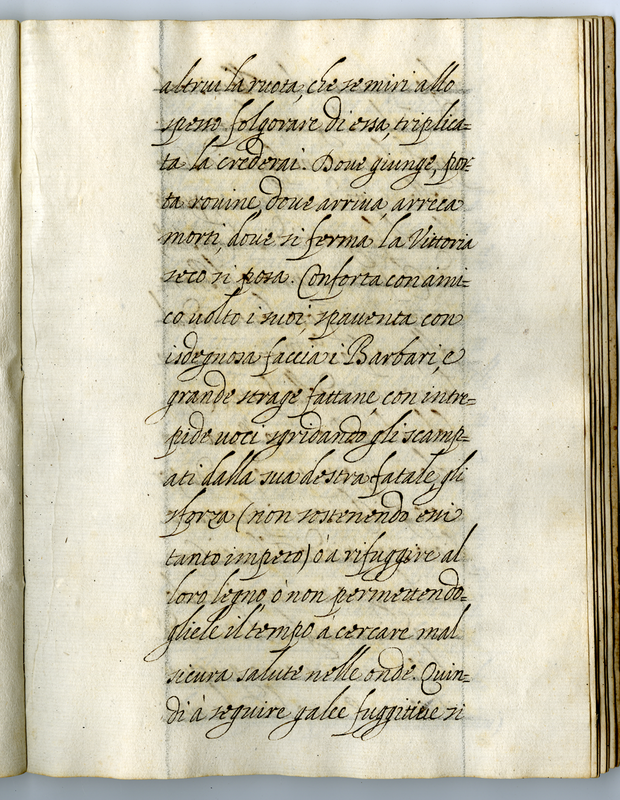 altrui la ruota, che se miri allo
spesso folgorare di essa, triplica=
ta la crederai. Dove giunge, por=
ta rovine, dove arriva, arreca
morti, dove si ferma, la Vittoria
seco si posa. Conforta con ami=
co volto i suoi, spaventa con
isdegnosa faccia i Barbari, e
grande strage fattane, con intre=
pide voci sgridando gli scamp=
ati dalla sua destra fatale, gli
sforza (non sostenendo essi
tanto impero) ó a rifuggire al
loro legno, ó non permettendo=
gliele il tempo á cercare mal
sicura salute nelle onde. Quin=
di á seguire galee fuggitive si